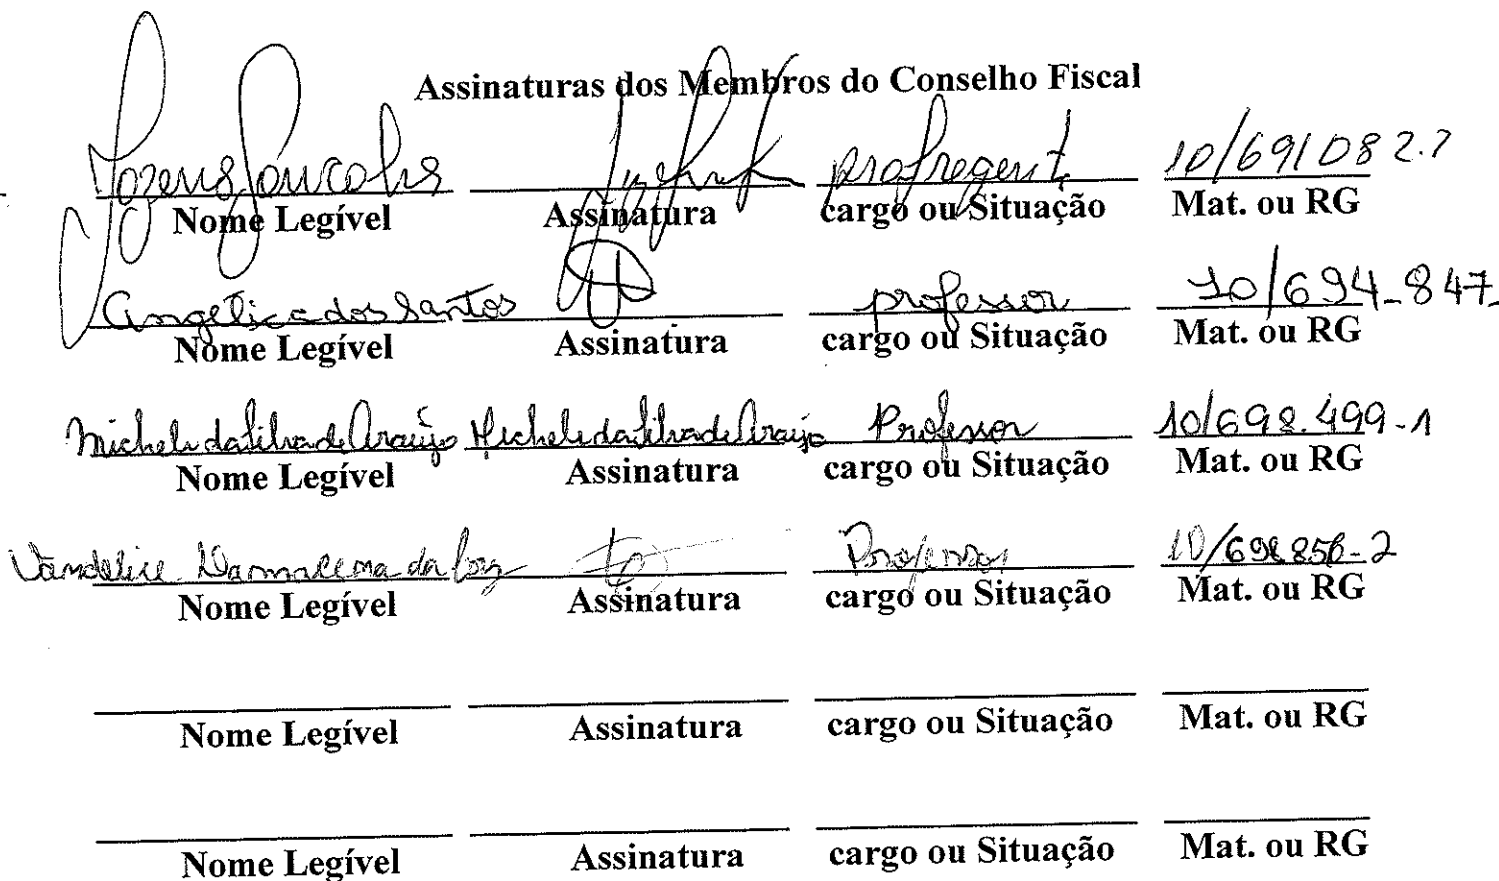 Assinaturas dos Membros do Conselho Fiscal
10/691082.7
Nome Legível Assinatura cargo ou Situação Mat. ou RG
Angelica dos Santos professor 10/694-847-
Nome Legível Assinatura cargo ou Situação Mat. ou RG
Michele da Silva de Araújo Michele da Silva de Araujo Professor 10/698.499-1
Nome Legível Assinatura cargo ou Situação Mat. ou RG
Vandelice Damacena da Professor
Nome Legível Assinatura cargo ou Situação Mat. ou RG
Nome Legível Assinatura cargo ou Situação Mat. ou RG
Nome Legível Assinatura cargo ou Situação Mat. ou RG